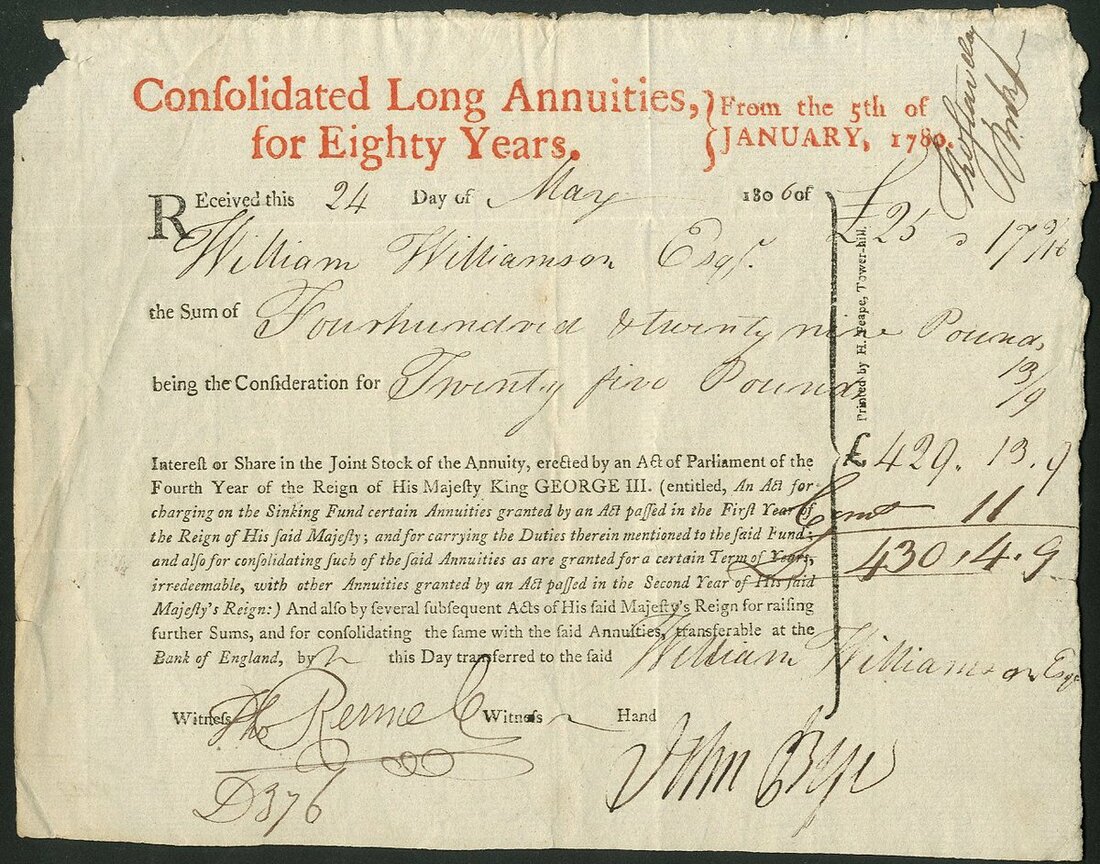 Conſolidated Long Annuities,
for Eighty Years.
From the 5th of
JANUARY, 1780.
REceived this 24 Day of May 1806 of
William Williamson Esqr.
£25 17 3/16
the Sum of Fourhundred & twenty nine Pounds
13/9
being the Conſideration for Twenty five Pounds
Printed by H. Peape, Tower-hill.
£429. 13. 9
11
430. 4. 9
Intereſt or Share in the Joint Stock of the Annuity, erected by an Act of Parliament of the
Fourth Year of the Reign of His Majeſty King GEORGE III. (entitled, An Act for
charging on the Sinking Fund certain Annuities granted by an Act paſſed in the First Year of
the Reign of His ſaid Majeſty; and for carrying the Duties therein mentioned to the ſaid Fund;
and alſo for conſolidating ſuch of the ſaid Annuities as are granted for a certain Term of Years,
irredeemable, with other Annuities granted by an Act paſſed in the Second Year of His ſaid
Majeſty's Reign:) And alſo by ſeveral ſubſequent Acts of His ſaid Majeſty's Reign for raiſing
further Sums, and for conſolidating the ſame with the ſaid Annuities, transferable at the
Bank of England, by this Day transferred to the ſaid William Williamson Esqr
Witneſs Witneſs Hand
John
D376